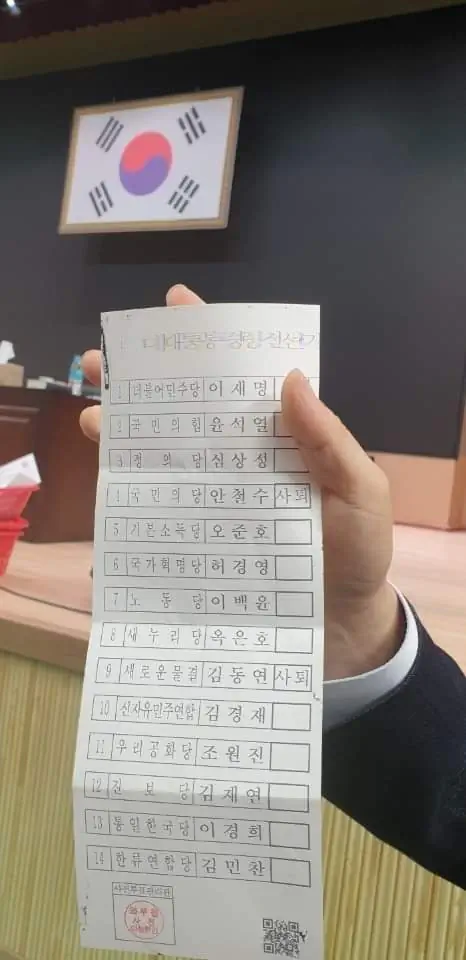 1 더불어민주당 이재명
2 국민의힘 윤석열
3 정의당 심상정
4 국민의당 안철수 사퇴
5 기본소득당 오준호
6 국가혁명당 허경영
7 노동당 이백윤
8 새누리당 옥은호
9 새로운물결 김동연 사퇴
10 신자유민주연합 김경재
11 우리공화당 조원진
12 진보당 김재연
13 통일한국당 이경희
14 한류연합당 김민찬
사전투표관리관